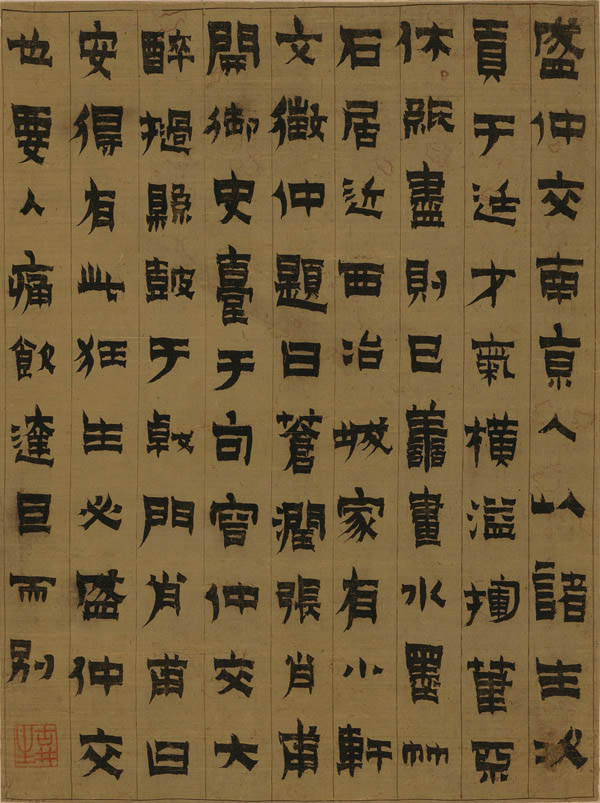 盛仲交南京人以諸生次
貢于廷才氣橫溢揮筆不
休紙盡則已善畫水墨竹
石居近西冶城家有小軒
文徵仲題曰蒼潤張肖甫
開御史臺于句容仲交大
醉撾縣鼓于戟門肖甫曰
安得有此狂生必盛仲交
也要入痛飲達旦而別